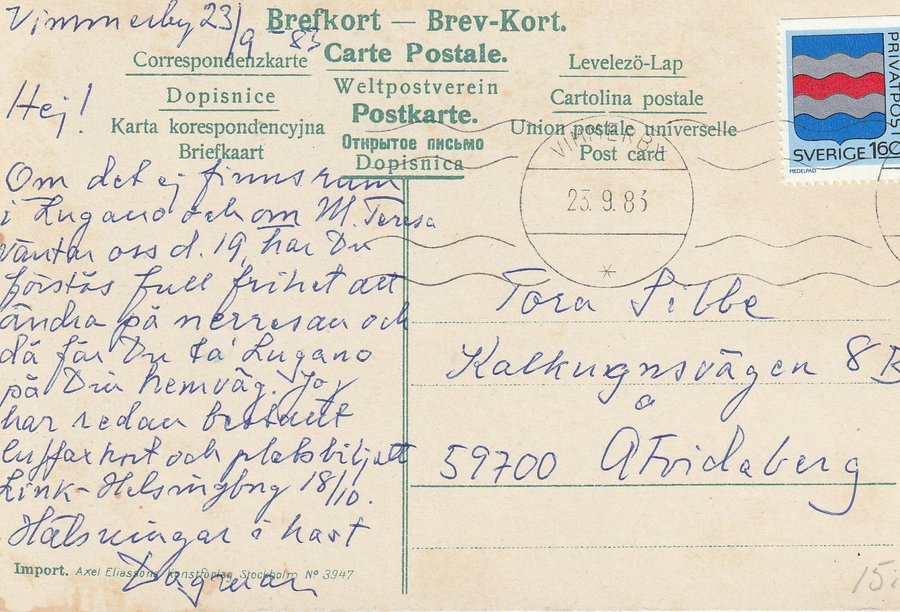 Vimmerby 23/9 - 83
Brefkort — Brev-Kort.
Correspondenzkarte
Carte Postale.
Levelezö-Lap
Weltpostverein
Dopisnice
Postkarte.
Cartolina postale
Karta korespondencyjna
Открытое письмо
Union postale universelle
Briefkaart
Dopisnica
Post card
PRIVATPOST
SVERIGE 160
MEDELPAD
VIMMERBY
23.9.83
Hej!
Om det ej finns rum
i Lugano och om M. Teresa
väntar oss d. 19, har Du
förstås full frihet att
ändra på nerresan och
då får Du ta Lugano
på Din hemväg. Jag
har redan beställt
luffarkort och platsbiljett
Link-Helsingborg 18/10.
Hälsningar i hast
Dagmar
Tora Silbe
Kalkugnsvägen 8 B
59700 Åtvidaberg
Import. Axel Eliassons Konstförlag Stockholm Nº 3947